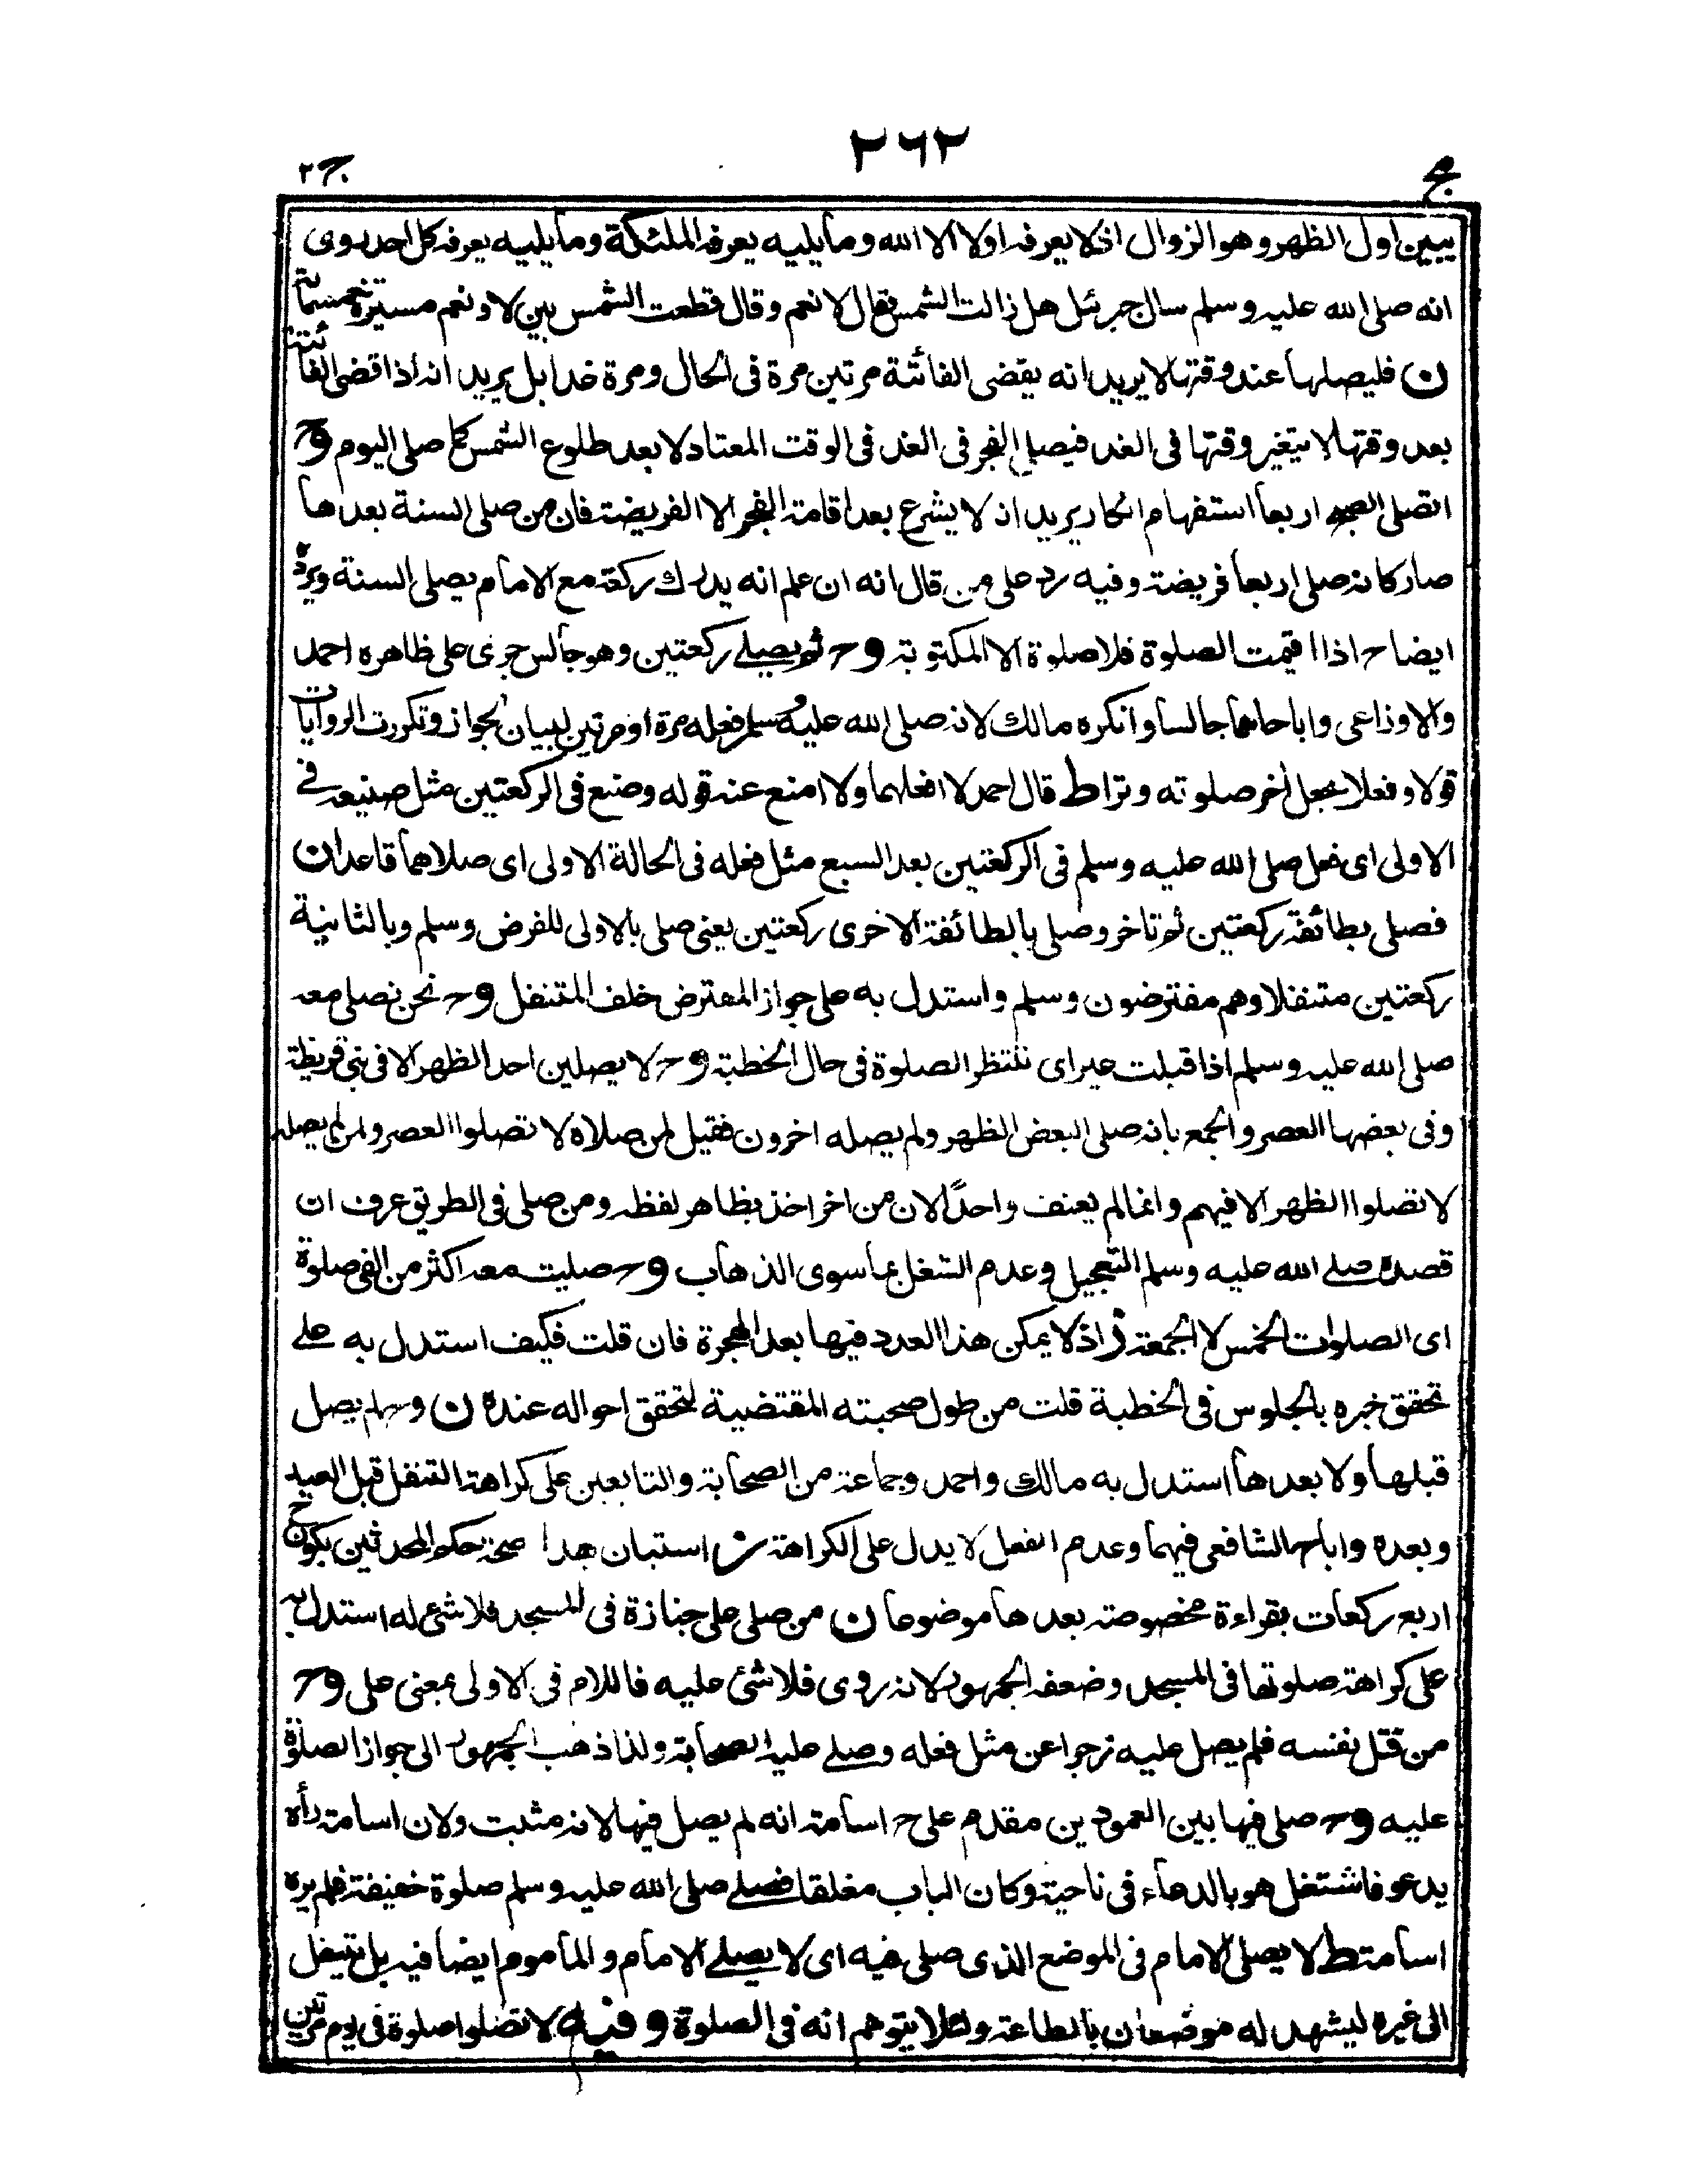 مج ٢٦٢ ج٢
يبين اول الظهر وهو الزوال اذ لا يعرفه اولا الا الله وما يليه يعرفه الملئكة وما يليه يعرفه كل احد روى
انه صلى الله عليه وسلم سال جبرئيل هل زالت الشمس فقال لا نعم وقال قطعت الشمس بين لا ونعم مسيرة خمسمائة
ن فليصلها عند وقتها لا يريد انه يقضى الفائتة مرتين مرة فى الحال ومرة غدا بل يريد انه اذا قضى الفائتة
بعد وقتها لا يتغير وقتها فى الغد فيصلى الفجر فى الغد فى الوقت المعتاد لا بعد طلوع الشمس كما صلى اليوم وح
اتصلى الصبح اربعا استفهام انكار يريد ان لا يشرع بعد اقامة الفجر الا الفريضة فان من صلى السنة بعدها
صار كانه صلى اربعا فريضة وفيه رد على من قال انه ان علم انه يدرك ركعة مع الامام يصلى السنة ويرده
ايضا ح اذا اقيمت الصلوة فلا صلوة الا المكتوبة وح ثم يصلے ركعتين وهو جالس جرى على ظاهره احمد
والاوزاعى واباحاهما جالسا وانكره مالك لانه صلى الله عليه وسلم فعله مرة او مرتين لبيان الجواز وتكررت الروايات
قولا وفعلا بجعل اخر صلوته وترا ط قال احمد لا افعلهما ولا امنع عنه قوله وصنع فى الركعتين مثل صنيعه فے
الاولى اى فعل صلى الله عليه وسلم فى الركعتين بعد السبع مثل فعله فى الحالة الاولى اى صلاهما قاعدا ن
فصلى بطائفة ركعتين ثم تاخر وصلى بالطائفة الاخرى ركعتين يعنى صلى بالاولى للفرض وسلم وبالثانية
ركعتين متنفلا وهم مفترضون وسلم واستدل به على جواز المفترض خلف المتنفل وح نحن نصلى معه
صلى الله عليه وسلم اذا قبلت عير اى ننتظر الصلوة فى حال الخطبة وح لا يصلين احد الظهر الا فى بنى قريظة
وفى بعضها العصر والجمع بانه صلى البعض الظهر ولم يصله اخرون فقيل لمن صلاه لا تصلوا العصر ولمن لم يصله
لا تصلوا الظهر الا فيهم وانما لم يعنف واحدًا لان من اخر اخذ بظاهر لفظه ومن صلى فى الطريق عرف ان
قصده صلے الله عليه وسلم التعجيل وعدم الشغل بما سوى الذهاب وح صليت معه اكثر من الفى صلوة
اى الصلوات الخمس لا الجمعة ز اذ لا يمكن هذا العدد فيها بعد الهجرة فان قلت فكيف استدل به علے
تحقق خبره بالجلوس فى الخطبة قلت من طول صحبته المقتضية لتحقق احواله عنده ن وح لم يصل
قبلها ولا بعدها استدل به مالك واحمد وجماعة من الصحابة والتابعين على كراهة التنفل قبل العيد
وبعده واباحه الشافعى فيهما وعدم الفعل لا يدل على الكراهة ش استبان بهذا صحة حكم المحدثين بكون ح
اربع ركعات بقراءة مخصوصة بعدها موضوعا ن من صلى على جنازة فى المسجد فلا شئ له استدل به
على كراهة صلوتها فى المسجد وضعفه الجمهور لانه روى فلا شئ عليه فاللام فى الاولى بمعنى على وح
من قتل نفسه فلم يصل عليه زجرا عن مثل فعله وصلے عليه الصحابة ولذا ذهب الجمهور الى جواز الصلوة
عليه وح صلى فيها بين العمودين مقدم على ح اسامة انه لم يصل فيها لانه مثبت ولان اسامة رأه
يدعو فاشتغل هو بالدعاء فى ناحية وكان الباب مغلقا فصلے صلى الله عليه وسلم صلوة خفيفة فلم يره
اسامة ط لا يصلى الامام فى الموضع الذى صلى فيه اى لا يصلے الامام والماموم ايضا فيه بل ينتقل
الى غيره ليشهد له موضعان بالطاعة ولئلا يتوهم انه فى الصلوة وفيه لا تصلوا صلوة فى يوم مرتين